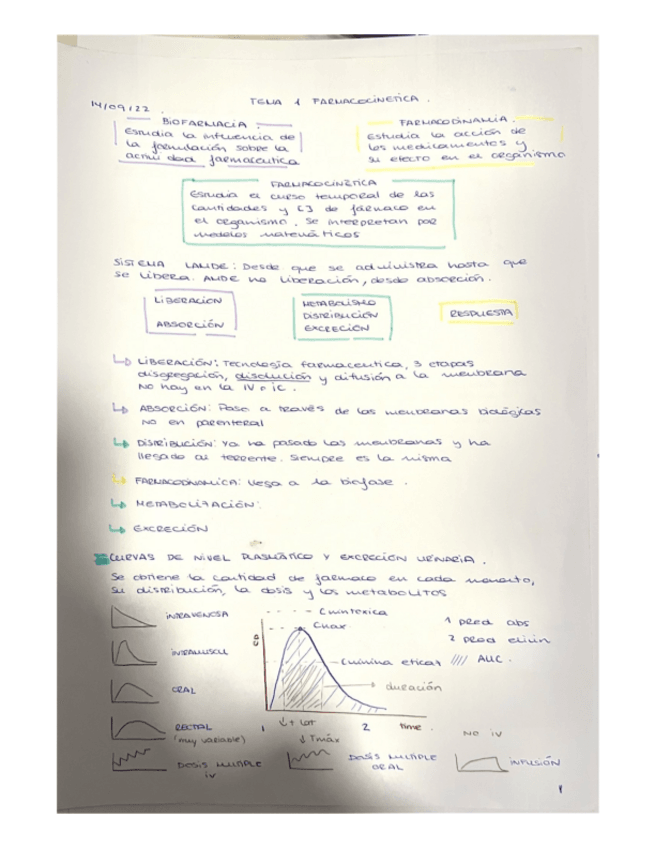 14/09/22
TEMA 1 FARMACOCINETICA.
BIOFARMACIA
Estudia la influencia de
la formulación sobre la
actividad farmaceutica
FARMACODINAMIA.
Estudia la acción de
los medicamentos y
su efecto en el organismo
FARMACOCINÉTICA
Estudia el curso temporal de las
cantidades y [] de fármaco en
el organismo. Se interpretan por
modelos matemáticos
SISTEMA LADME: Desde que se administra hasta que
se libera. ADME no liberación, desde absorción.
LIBERACION
ABSORCIÓN
METABOLISMO
DISTRIBUCIÓN
EXCRECIÓN
RESPUESTA
LIBERACIÓN: Tecnología farmaceutica, 3 etapas
disgregación, disolución y difusión a la membrana
No hay en la IV o ic.
ABSORCIÓN: Paso a través de las membranas biológicas
NO en parenteral
DISTRIBUCIÓN: Ya ha pasado las membranas y ha
llegado al torrente. Siempre es la misma
FARMACODINAMICA: llega a la biofase.
METABOLIZACIÓN:
EXCRECIÓN
CURVAS DE NIVEL PLASMÁTICO Y EXCRECIÓN URINARIA.
Se obtiene la cantidad de farmaco en cada momento,
su distribución, la dosis y los metabolitos
INTRAVENOSA
INTRAMUSCUL
ORAL
RECTAL
(muy variable)
DOSIS MULTIPLE
IV
CP
C min toxica
Cmax
C minima eficaz
duración
1
↓ t lat
↓ Tmáx
2
time.
1 pred abs
2 pred elimin
//// AUC.
NO IV
DOSIS MULTIPLE
ORAL
INFUSIÓN
1